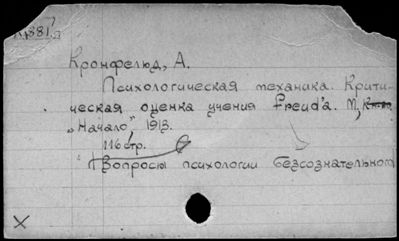 Кронфельд, А.
Психологическая механика. Крити-
ческая оценка учения Freud'а. М,
"Начало", 1913.
116 стр.
Вопросы психологии безсознательном